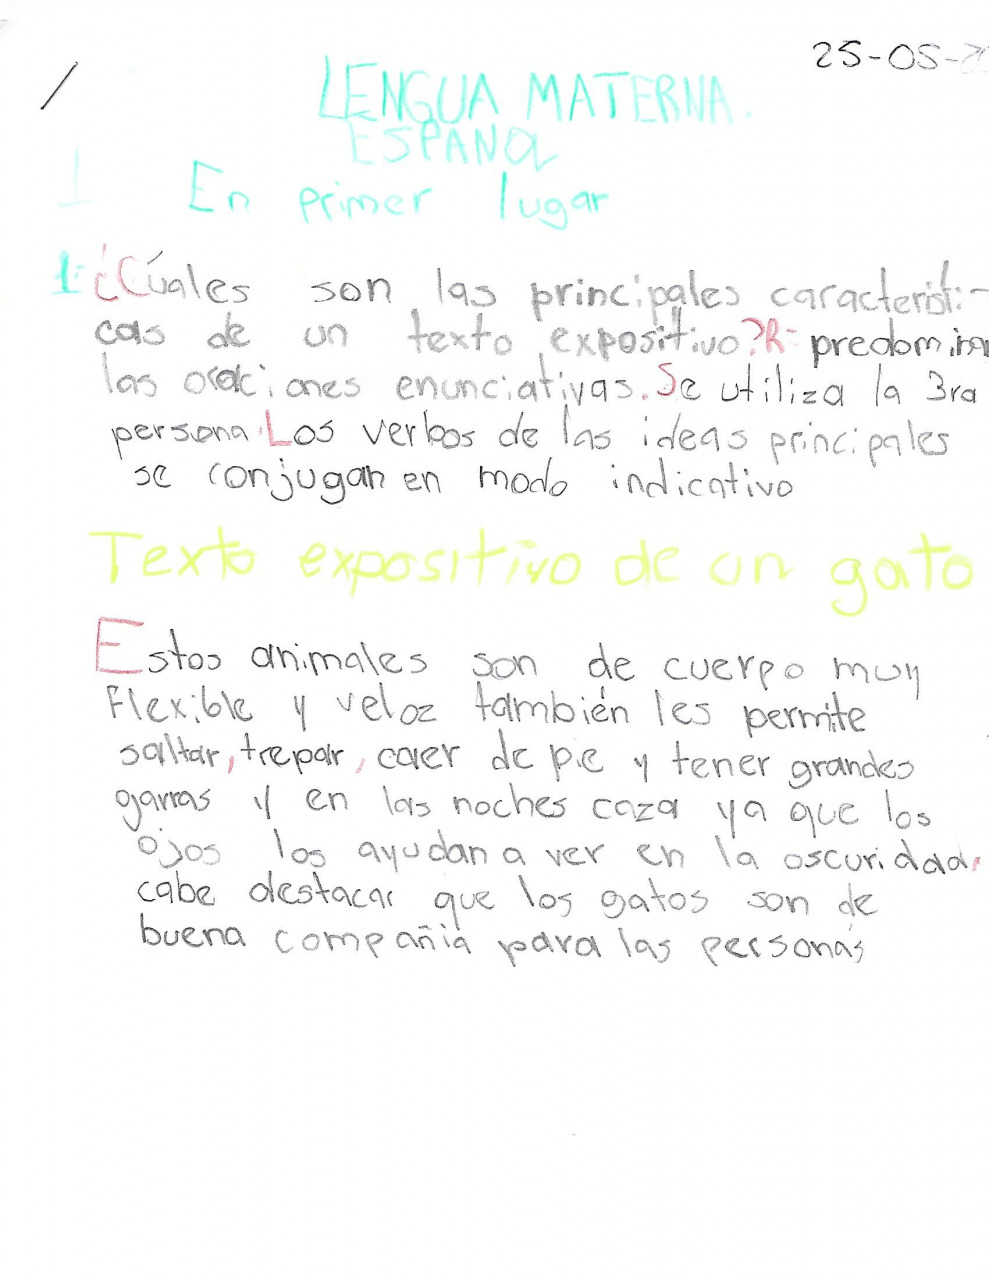 25-05-20
LENGUA MATERNA.
ESPAÑOL
1 En primer lugar
1-¿Cúales son las principales característi-
cas de un texto expositivo?R- predominan
las oraciones enunciativas. Se utiliza la 3ra
persona. Los verbos de las ideas principales
se conjugan en modo indicativo
Texto expositivo de un gato
Estos animales son de cuerpo muy
flexible y veloz también les permite
saltar, trepar, caer de pie y tener grandes
garras y en las noches caza ya que los
ojos los ayudan a ver en la oscuridad,
cabe destacar que los gatos son de
buena compañia para las personas